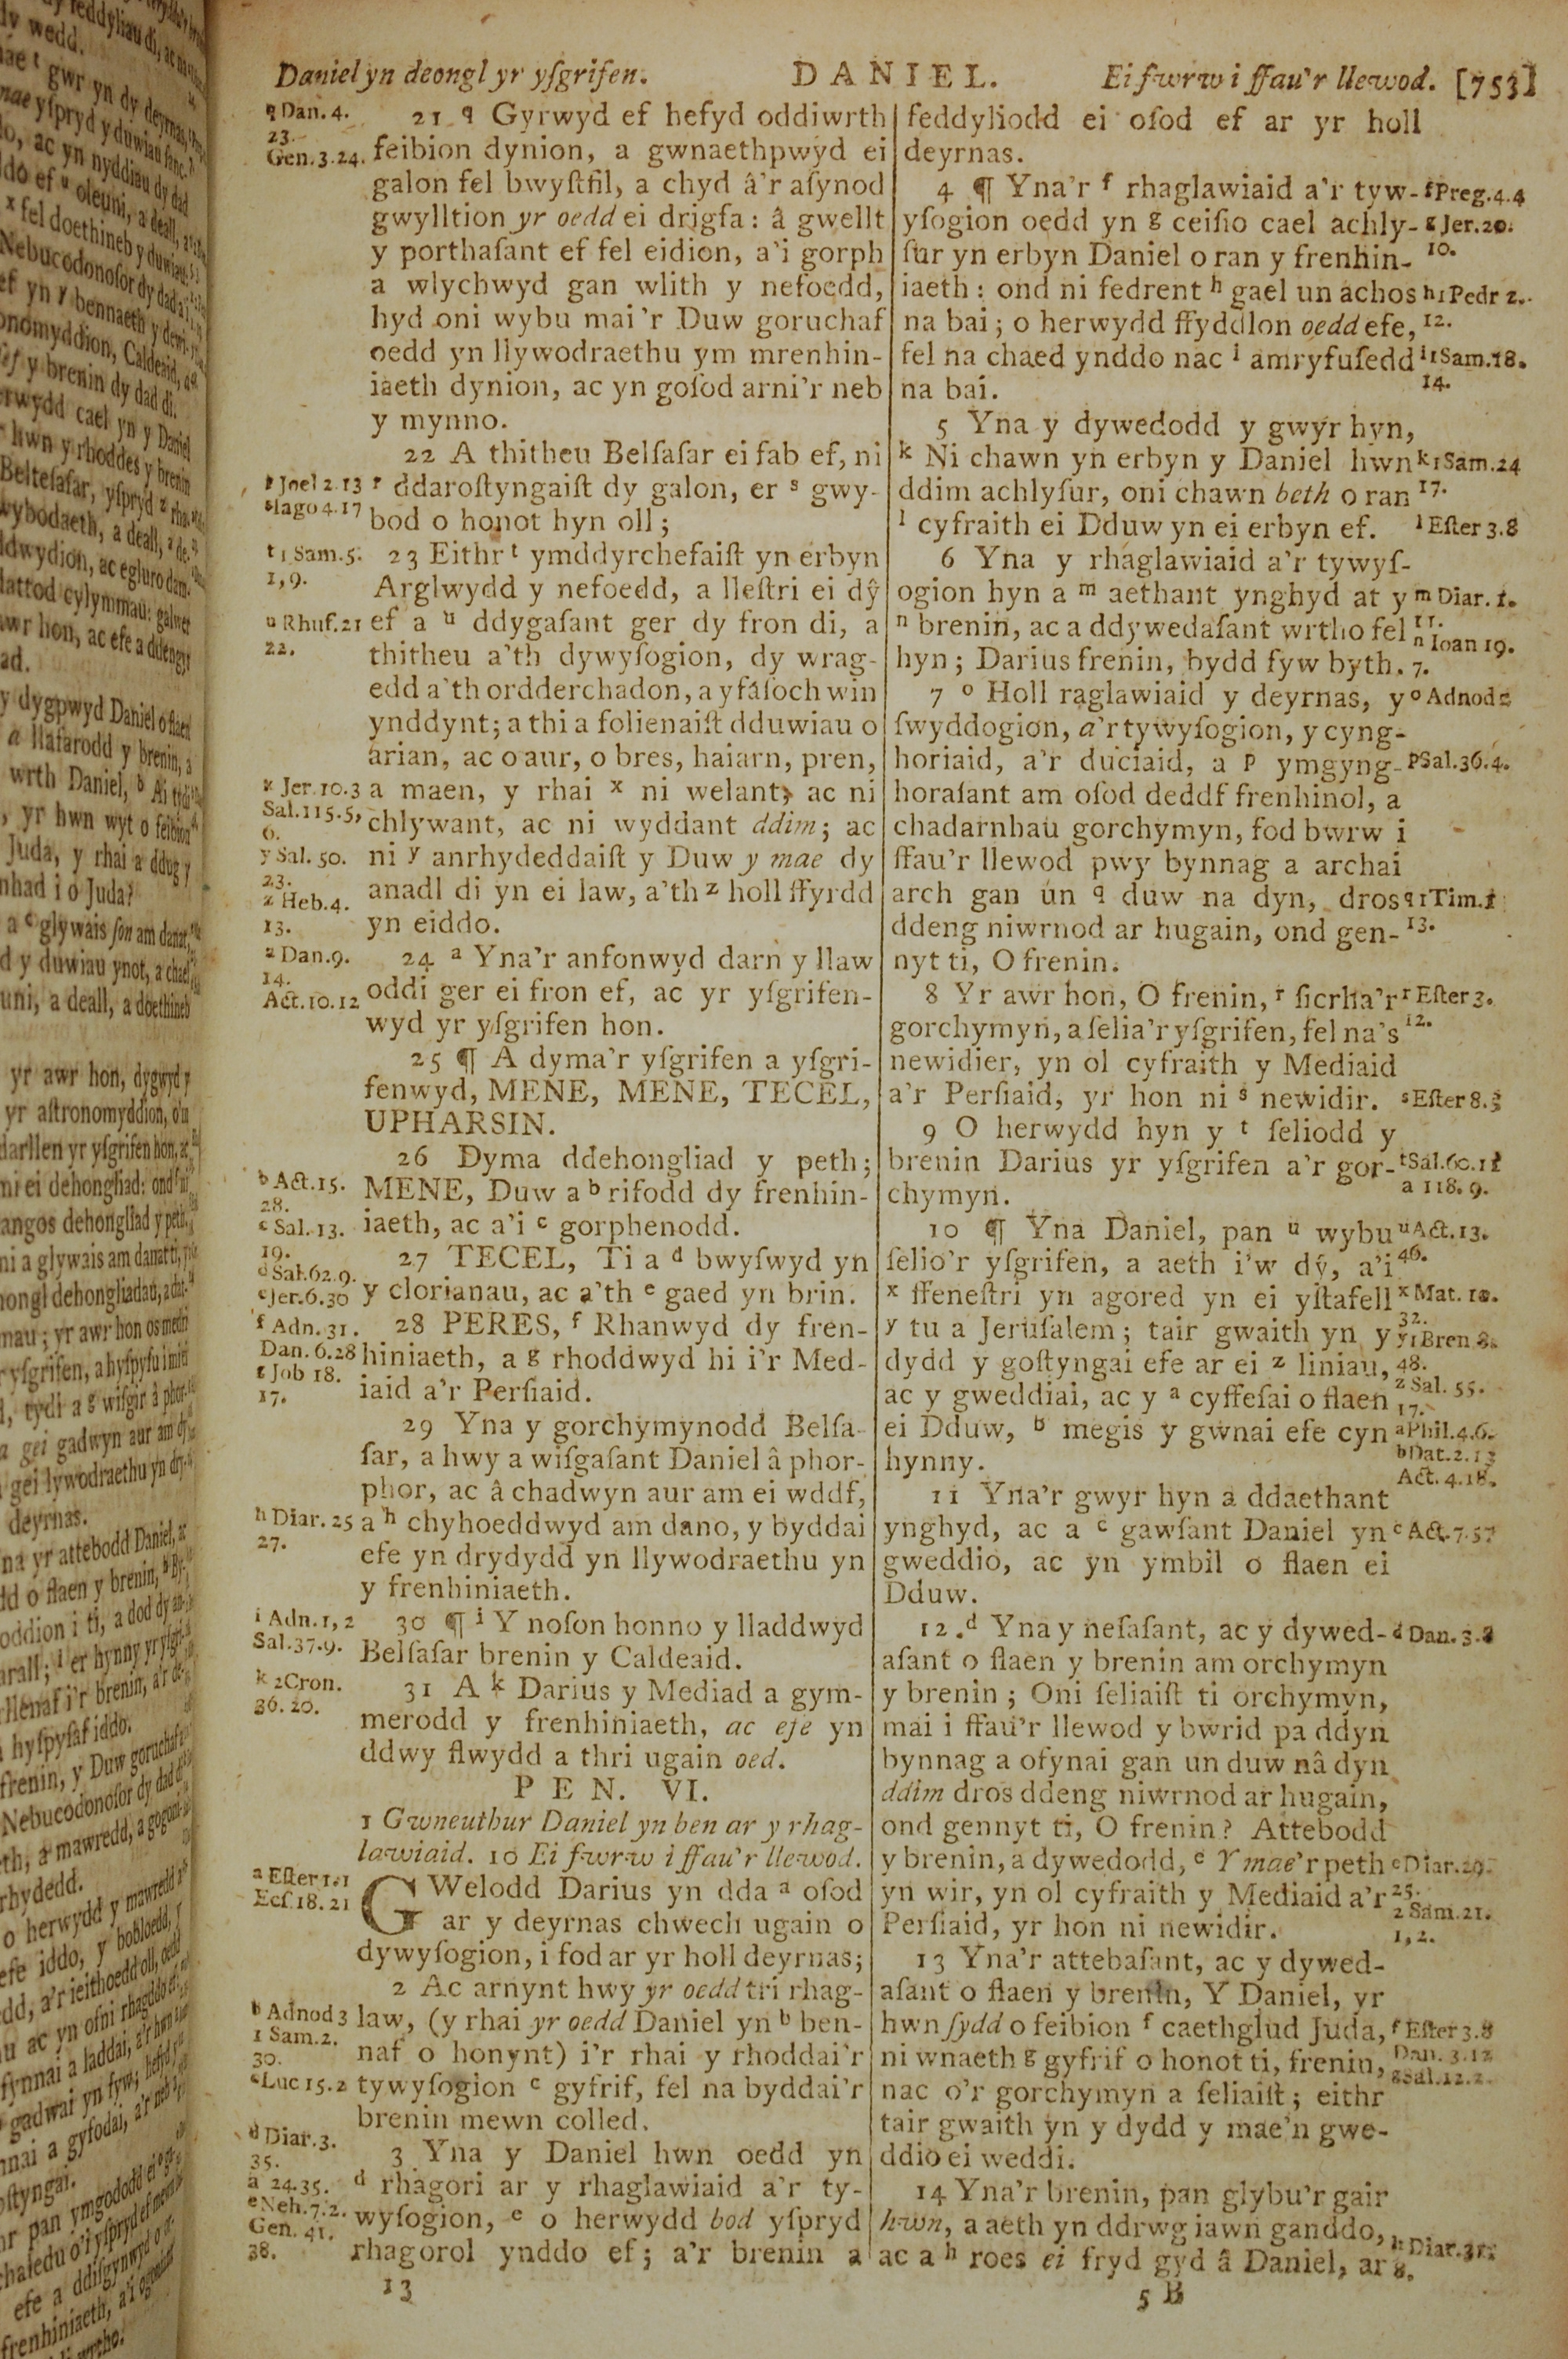 Daniel yn deongl yr yſgrifen. DANIEL. Ei fwrw i ffau'r llewod. [753]
q Dan. 4.
23.
Gen. 3. 24.
21 q Gyrwyd ef hefyd oddiwrth
feibion dynion, a gwnaethpwyd ei
galon fel bwyſtfil, a chyd â'r aſynod
gwylltion yr oedd ei drigfa: â gwellt
y porthaſant ef fel eidion, a'i gorph
a wlychwyd gan wlith y nefoedd,
hyd oni wybu mai'r Duw goruchaf
oedd yn llywodraethu ym mrenhin-
iaeth dynion, ac yn goſod arni'r neb
y mynno.
22 A thitheu Belſaſar ei fab ef, ni
r Joel 2. 13
s Iago 4. 17
r ddaroſtyngaiſt dy galon, er s gwy-
bod o honot hyn oll;
t 1 Sam. 5.
1, 9.
23 Eithr t ymddyrchefaiſt yn erbyn
Arglwydd y nefoedd, a lleſtri ei dŷ
u Rhuf. 21
22.
ef a u ddygaſant ger dy fron di, a
thitheu a'th dywyſogion, dy wrag-
edd a'th ordderchadon, a yfâſoch win
ynddynt; a thi a folienaiſt dduwiau o
arian, ac o aur, o bres, haiarn, pren,
x Jer. 10. 3
Sal. 115. 5,
6.
a maen, y rhai x ni welant, ac ni
chlywant, ac ni wyddant ddim; ac
y Sal. 50.
23.
ni y anrhydeddaiſt y Duw y mae dy
z Heb. 4.
13.
anadl di yn ei law, a'th z holl ffyrdd
yn eiddo.
a Dan. 9.
14.
Act. 10. 12
24 a Yna'r anfonwyd darn y llaw
oddi ger ei fron ef, ac yr yſgrifen-
wyd yr yſgrifen hon.
25 ¶ A dyma'r yſgrifen a yſgri-
fenwyd, MENE, MENE, TECEL,
UPHARSIN.
26 Dyma ddehongliad y peth;
b Act. 15.
28.
MENE, Duw a b rifodd dy frenhin-
c Sal. 13.
19.
iaeth, ac a'i c gorphenodd.
d Sal. 62. 9.
27 TECEL, Ti a d bwyſwyd yn
e Jer. 6. 30
y clorianau, ac a'th e gaed yn brin.
f Adn. 31.
Dan. 6. 28
28 PERES, f Rhanwyd dy fren-
g Job 18.
17.
hiniaeth, a g rhoddwyd hi i'r Med-
iaid a'r Perſiaid.
29 Yna y gorchymynodd Belſa-
ſar, a hwy a wiſgaſant Daniel â phor-
phor, ac â chadwyn aur am ei wddf,
h Diar. 25
27.
a h chyhoeddwyd am dano, y byddai
efe yn drydydd yn llywodraethu yn
y frenhiniaeth.
i Adn. 1, 2
Sal. 37. 9.
30 ¶ i Y noſon honno y lladdwyd
Belſaſar brenin y Caldeaid.
k 2 Cron.
36. 20.
31 A k Darius y Mediad a gym-
merodd y frenhiniaeth, ac efe yn
ddwy flwydd a thri ugain oed.
PEN. VI.
1 Gwneuthur Daniel yn ben ar y rhag-
lawiaid. 10 Ei fwrw i ffau'r llewod.
a Eſter 1. 1
Ecſ. 18. 21
GWelodd Darius yn dda a oſod
ar y deyrnas chwech ugain o
dywyſogion, i fod ar yr holl deyrnas;
2 Ac arnynt hwy yr oedd tri rhag-
b Adnod 3
1 Sam. 2.
30.
law, (y rhai yr oedd Daniel yn b ben-
naf o honynt) i'r rhai y rhoddai'r
c Luc 15. 2
tywyſogion c gyfrif, fel na byddai'r
brenin mewn colled.
d Diar. 3.
35.
a 24. 35.
3 Yna y Daniel hwn oedd yn
d rhagori ar y rhaglawiaid a'r ty-
e Neh. 7. 2.
Gen. 41.
38.
wyſogion, e o herwydd bod yſpryd
rhagorol ynddo ef; a'r brenin a
13
feddyliodd ei oſod ef ar yr holl
deyrnas.
4 ¶ Yna'r f rhaglawiaid a'r tyw-
f Preg. 4. 4
yſogion oedd yn g ceiſio cael achly-
g Jer. 20.
10.
ſur yn erbyn Daniel o ran y frenhin-
iaeth: ond ni fedrent h gael un achos
h 1 Pedr 2.
12.
na bai; o herwydd ffyddlon oedd efe,
fel na chaed ynddo nac i amryfuſedd
i 1 Sam. 18.
14.
na bai.
5 Yna y dywedodd y gwŷr hyn,
k Ni chawn yn erbyn y Daniel hwn
k 1 Sam. 24
17.
ddim achlyſur, oni chawn beth o ran
l cyfraith ei Dduw yn ei erbyn ef.
l Eſter 3. 8
6 Yna y rhaglawiaid a'r tywyſ-
ogion hyn a m aethant ynghyd at y
m Diar. 1.
11.
n brenin, ac a ddywedaſant wrtho fel
n Ioan 19.
7.
hyn; Darius frenin, bydd fyw byth.
7 o Holl raglawiaid y deyrnas, y
o Adnod 2
ſwyddogion, a'r tywyſogion, y cyng-
horiaid, a'r duciaid, a p ymgyng-
p Sal. 36. 4.
horaſant am oſod deddf frenhinol, a
chadarnhau gorchymyn, fod bwrw i
ffau'r llewod pwy bynnag a archai
arch gan un q duw na dyn, dros
q 1 Tim. 1
13.
ddeng niwrnod ar hugain, ond gen-
nyt ti, O frenin.
8 Yr awr hon, O frenin, r ſicrha'r
r Eſter 3.
12.
gorchymyn, a ſelia'r yſgrifen, fel na's
newidier, yn ol cyfraith y Mediaid
a'r Perſiaid, yr hon ni s newidir.
s Eſter 8. 3
9 O herwydd hyn y t ſeliodd y
brenin Darius yr yſgrifen a'r gor-
t Sal. 60. 11
a 118. 9.
chymyn.
10 ¶ Yna Daniel, pan u wybu
u Act. 13.
46.
ſelio'r yſgrifen, a aeth i'w dŷ, a'i
x ffeneſtri yn agored yn ei yſtafell
x Mat. 10.
32.
y tu a Jeruſalem; tair gwaith yn y
y 1 Bren 8.
48.
dydd y goſtyngai efe ar ei z liniau,
z Sal. 55.
17.
ac y gweddiai, ac y a cyffeſai o flaen
ei Dduw, b megis y gwnai efe cyn
a Phil. 4. 6.
b Dat. 2. 13
Act. 4. 18.
hynny.
11 Yna'r gwyr hyn a ddaethant
ynghyd, ac a c gawſant Daniel yn
c Act. 7. 57
gweddio, ac yn ymbil o flaen ei
Dduw.
12 d Yna y neſaſant, ac y dywed-
d Dan. 3. 8
aſant o flaen y brenin am orchymyn
y brenin; Oni ſeliaiſt ti orchymyn,
mai i ffau'r llewod y bwrid pa ddyn
bynnag a ofynai gan un duw nâ dyn
ddim dros ddeng niwrnod ar hugain,
ond gennyt ti, O frenin? Attebodd
y brenin, a dywedodd, e Y mae'r peth
e Diar. 29.
25.
yn wir, yn ol cyfraith y Mediaid a'r
2 Sam. 21.
1, 2.
Perſiaid, yr hon ni newidir.
13 Yna'r attebaſant, ac y dywed-
aſant o flaen y brenin, Y Daniel, yr
hwn ſydd o feibion f caethglud Juda,
f Eſter 3. 8
Dan. 3. 12
ni wnaeth g gyfrif o honot ti, frenin,
g Sal. 12. 2.
nac o'r gorchymyn a ſeliaiſt; eithr
tair gwaith yn y dydd y mae'n gwe-
ddio ei weddi.
14 Yna'r brenin, pan glybu'r gair
hwn, a aeth yn ddrwg iawn ganddo,
ac a h roes ei fryd gyd â Daniel, ar
h Diar. 31.
8.
5 B